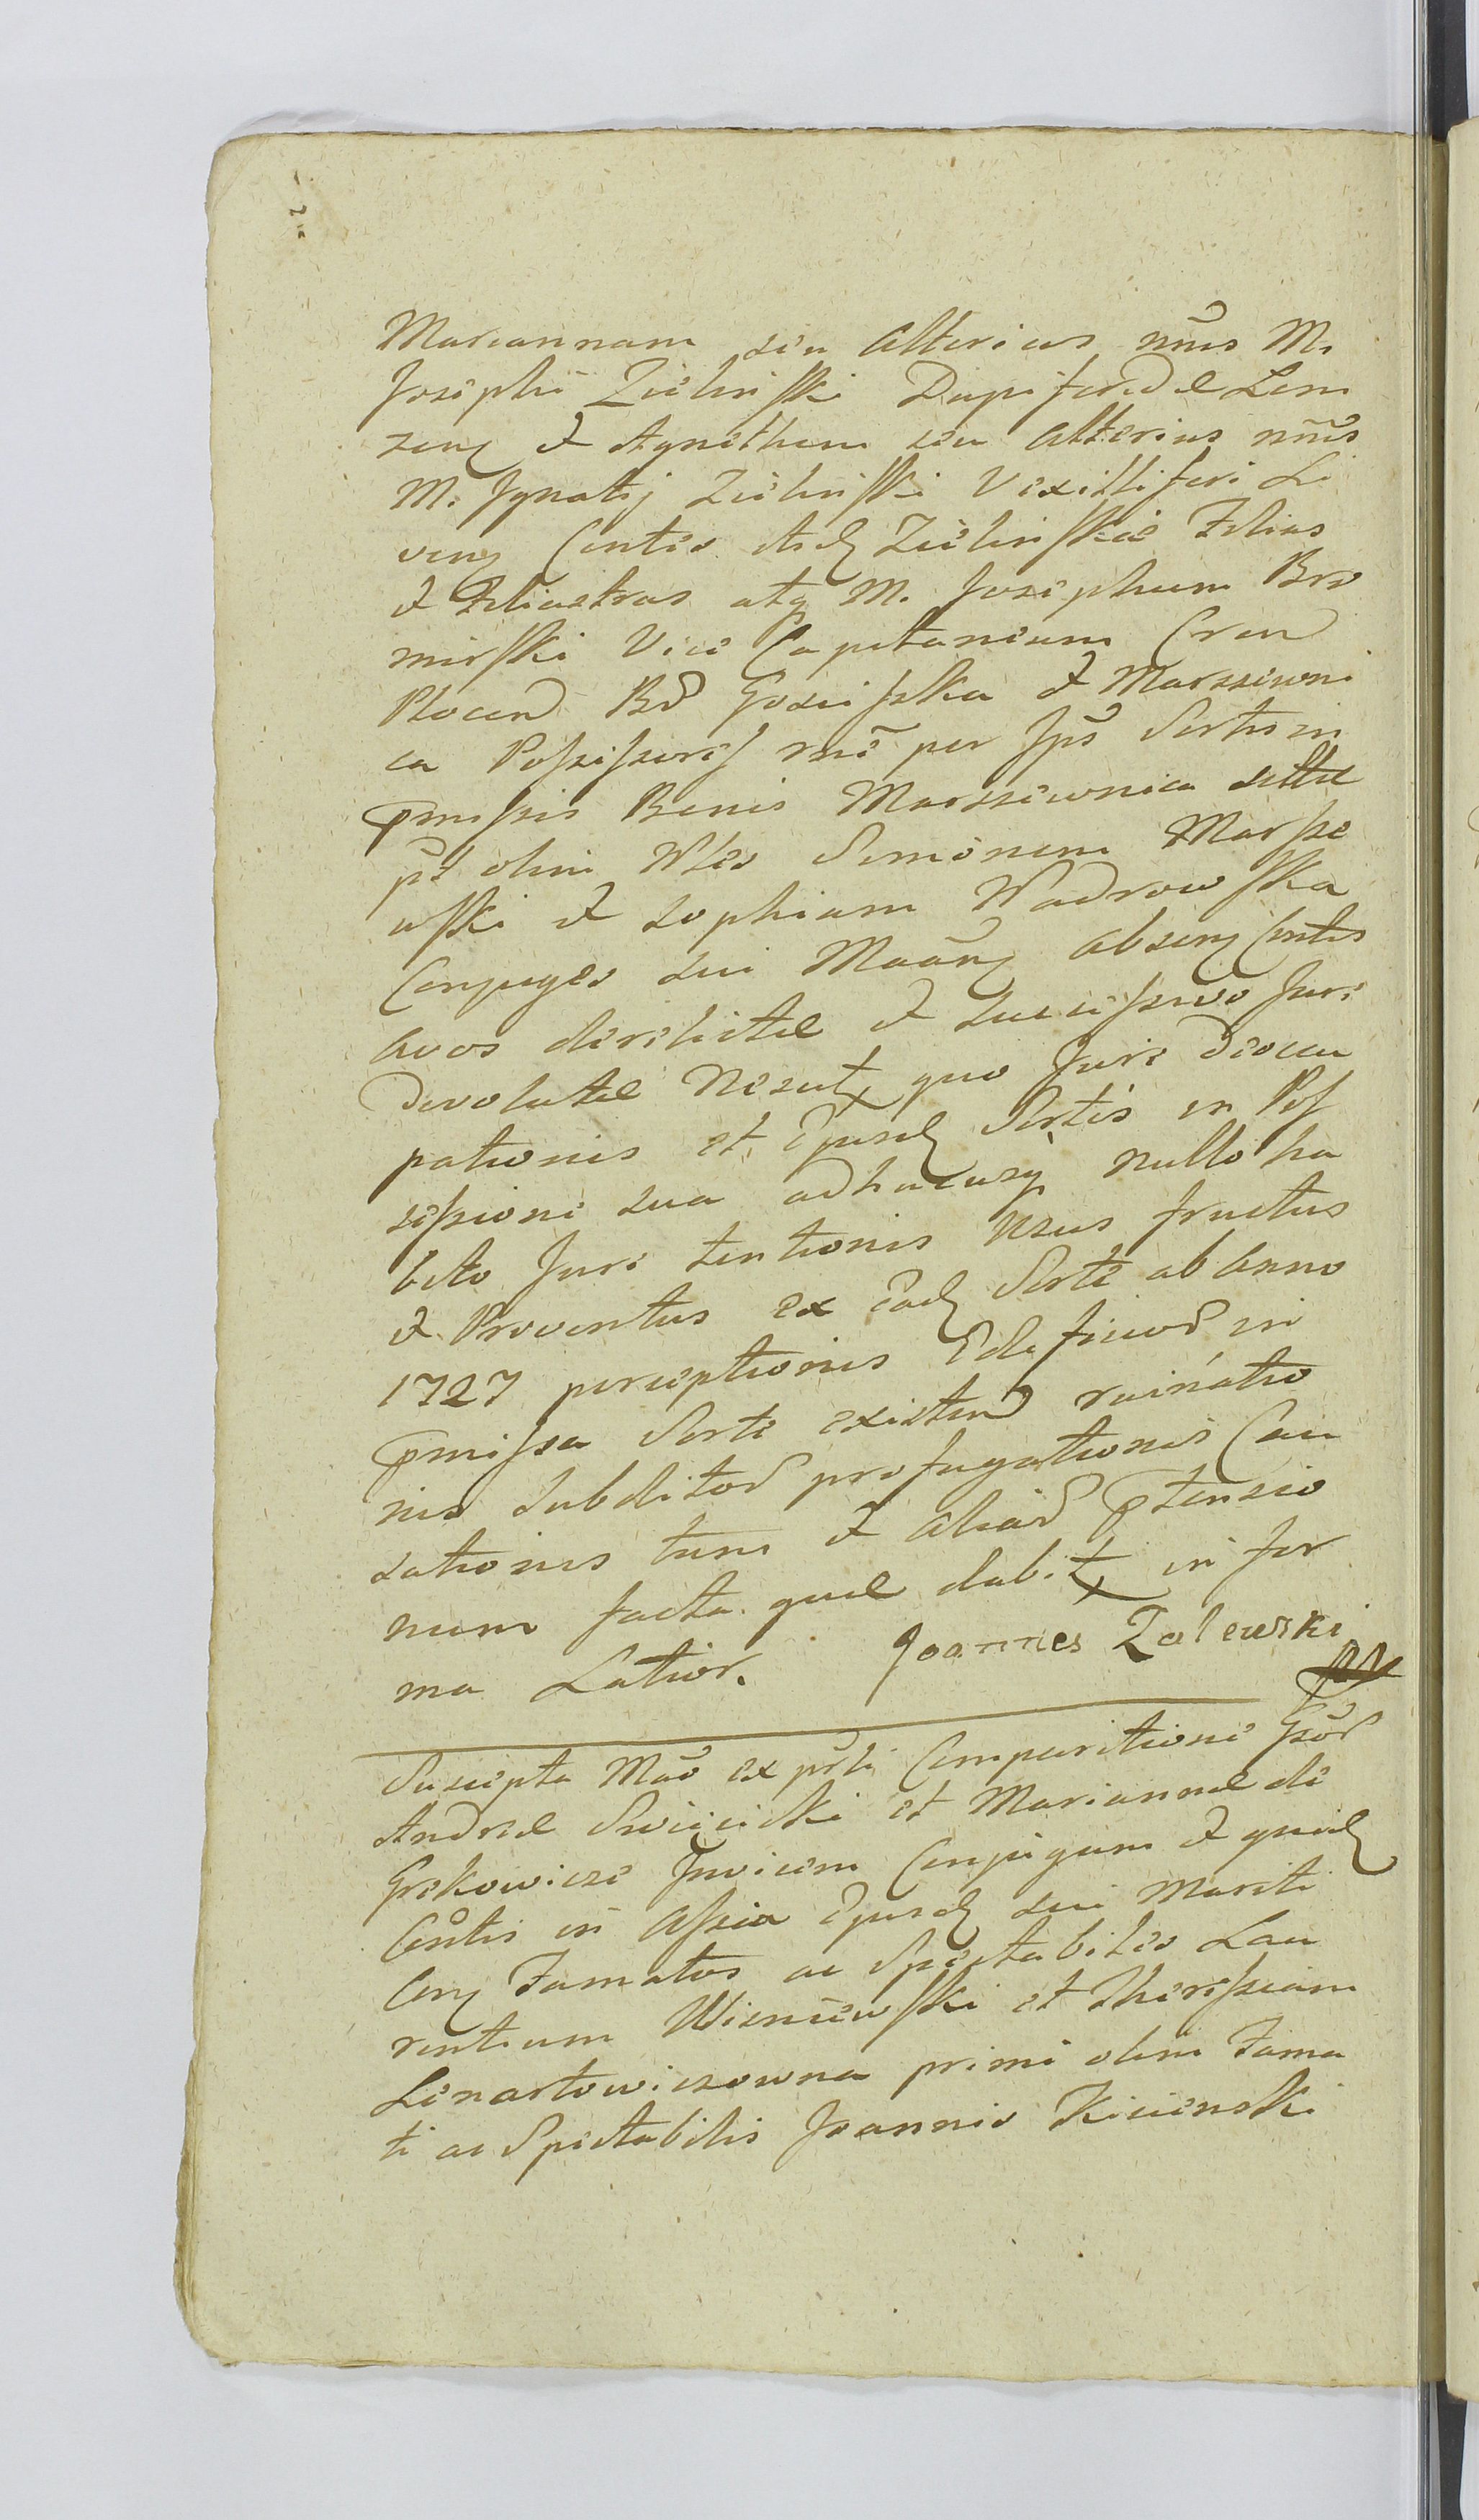 Mariannam seu alterius nmis M.
Josephi Zielinski Dapiferidae Lom
zen et Agnethem seu alterius nmis
M. Ignatij Zielinski Vexilliferi Li
ven Contes Zielinskie Filias
et Filiastras atq M. Josephum Bro
mirski Vice Capitaneum Cren
Plocen Bd et Marszewni
ca Possessores rne per Ips Sortis in
pmissis Benis Marszewnica sitae
pt olim Nles Simonem Marsze
wski et Sophiam Wadrowska
Conjuges sui absen Contes
Avos derelictae et successivo Jure
devolutae Nesut quo Jure deocu
pationis et Ejusd Sortis in Pos
sessione sua adhacusq nullo ha
bito Jure tentionis Usus fructus
et Proventus ex ead Sorte ab Anno
1727 perceptionis Edeficiord in
pmissa Sorte existend ruinatio
nis subditord profugationis Cau
sationis tum et aliard ptensio
num facta. quae dabit in for
ma Latior. Joannes Zalewski
Suscepta Mao ex prti Comparitione Gsord
Andreae Swiecicki et Mariannae de
Grekowicze Invicem Conjugum et quid
Contis in Assia Ejusd sui Mariti
Con Famatos ac Spectabiles Lau
rentium Wisniewski et Theressiam
Lenartowiczowna primi olim Fama
ti ac Spectabilis Joannis Kicienski